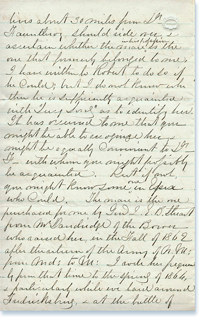 lives about 30 miles from Dr
should ride over &
ascertain whether the mare is the
one that formerly belonged to me.
I have written to Robert to do so if
he could; but I do not know whe
ther he is sufficiently acquainted
with Lucy Long as to identify her.
It has occurred to me that you
might be able to recognize her,
might be equally convenient to Dr
with whom you might possibly
be acquainted. But if not
you might know some one
who could. The mare is the one
purchased for me by Genl J. E. B. Stuart
from Mr of the Bower
who raised her, in the Fall of 1862
after the return of the Army of N. Va:
from Md: to Va: I rode her
from that time to the spring of 1864,
particularly while we laid around
Fredericksburg, & at the battle of